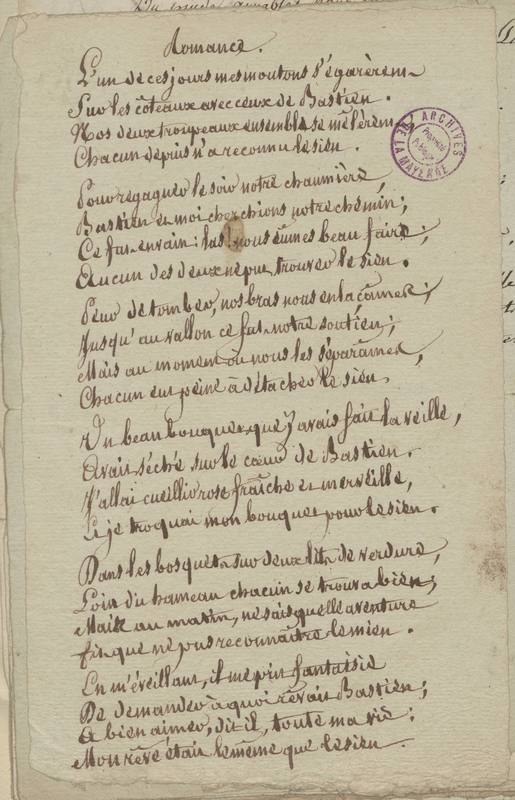 Romance.
L'un de ces jours mes moutons s'égarèrent
Sur les côteaux avec ceux de Bastien.
Nos deux troupeaux ensemble se mêlèrent
Chacun depuis n'a reconnu le sien.
Pour regagner le soir notre chaumière,
Bastien et moi cherchions notre chemin;
Ce fut en vain: las! nous eûmes beau faire;
Aucun des deux ne put trouver le sien.
Peur de tomber, nos bras nous enlaçâmes;
Jusqu'au vallon ce fut notre soutien;
Mais au moment où nous les séparâmes,
Chacun eut peine à détacher le sien.
Un beau bouquet que j'avais fait la veille,
Avait séché sur le cœur de Bastien.
J'allai cueillir rose fraîche et merveille,
Et je troquai mon bouquet pour le sien.
Dans les bosquets sur deux lits de verdure,
Loin du hameau chacun se trouva bien;
Mais au matin, ne sais quelle aventure
fit que ne pus reconnaître le mien.
En m'éveillant, il me prit fantaisie
De demander à quoi rêvait Bastien;
A bien aimer, dit-il, toute ma vie;
Mon rêve était le même que le sien.
ARCHIVES
DE LA MAYENNE